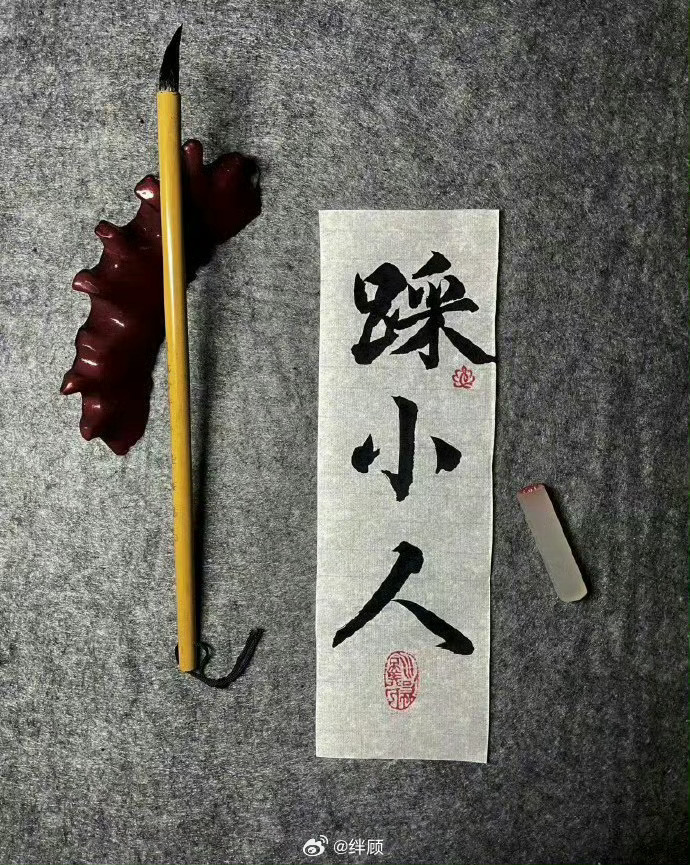 踩小人
@绊顾